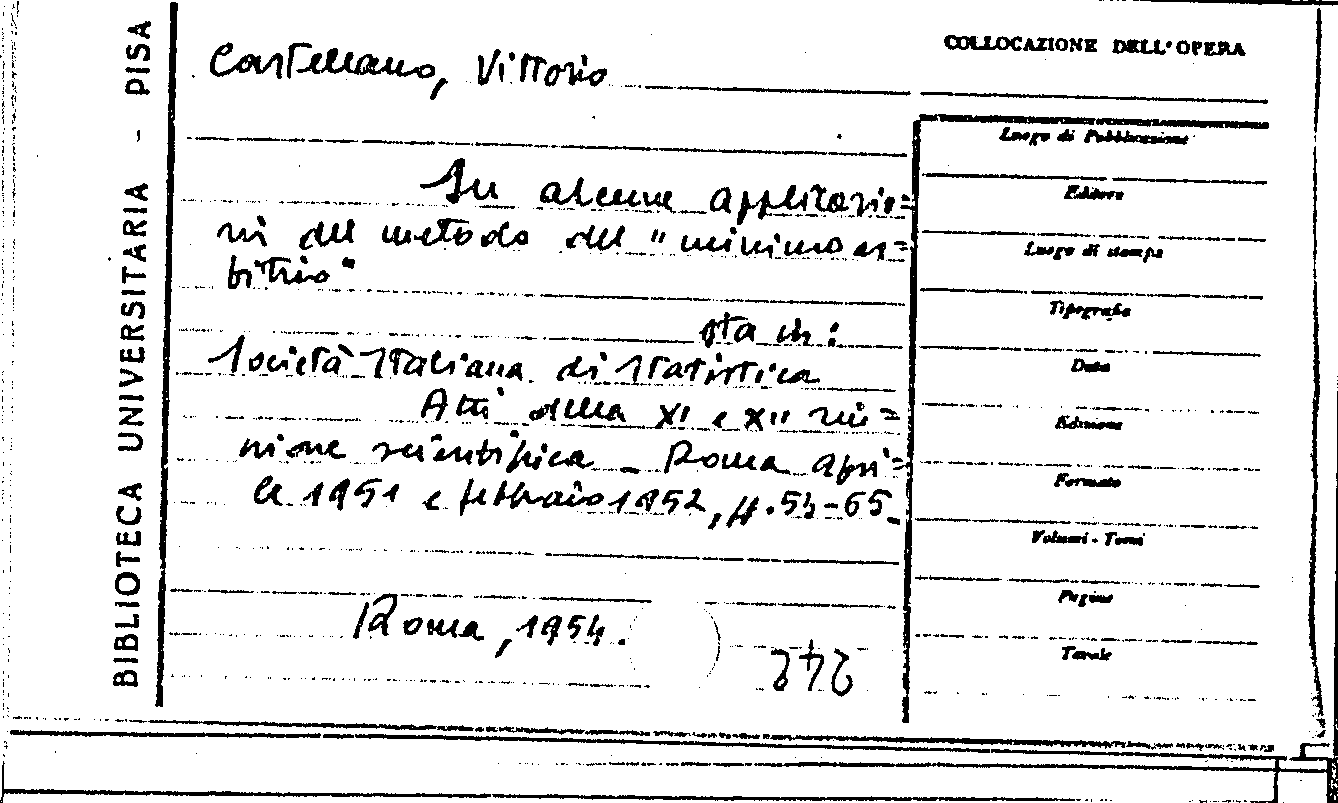 BIBLIOTECA UNIVERSITARIA - PISA
Castellano, Vittorio
Su alcune applicazio=
ni del metodo del "minimo ar=
bitrio"
sta in:
Società Italiana di Statistica
Atti della XI e XII riu=
nione scientifica - Roma apri=
le 1951 e febbraio 1952, pp. 54-65.
Roma, 1954.
242
COLLOCAZIONE DELL'OPERA
Luogo di Pubblicazione
Editore
Luogo di stampa
Tipografia
Data
Edizione
Formato
Volumi - Tomi
Pagine
Tavole